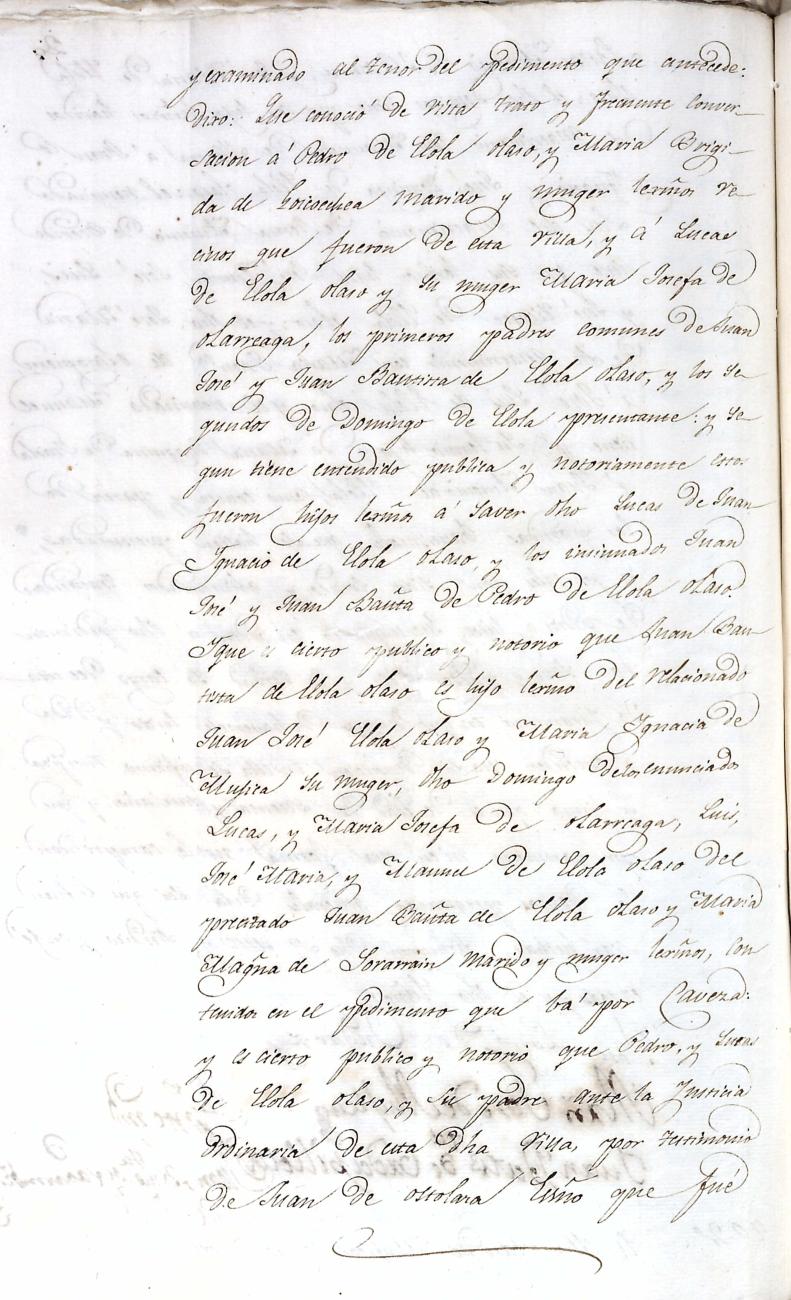 y examinado al tenor del pedimento que antecede:
Dixo: Que conoció de vista trato y frecuente conver-
sacion á Pedro de Elola olaso, y Maria Brigi-
da de Goicoechea marido y muger lexmos ve-
cinos que fueron de esta villa, y á Lucas
de Elola olaso y su muger Maria Josefa de
olarreaga, los primeros padres comunes de Juan
José y Juan Bautista de Elola olaso, y los se-
gundos de Domingo de Elola presentante: y se-
gun tiene entendido publica y notoriamente estos
fueron hijos lexmos á saver dho Lucas de Juan
Ignacio de Elola olaso, y los insinuados Juan
José y Juan Bauta de Pedro de Elola olaso.
Yque es cierto publico y notorio que Juan Bau-
tista de Elola olaso es hijo lexmo del relacionado
Juan José Elola olaso y Maria Ignacia de
Mugica su muger, dho Domingo delos enunciados
Lucas, y Maria Josefa de olarreaga, Luis,
José Maria, y Manuel de Elola olaso del
precitado Juan Bauta de Elola olaso y Maria
Magna de Sorarrain marido y muger lexmos, con
tenidos en el pedimento que bá por Caveza:
y es cierto publico y notorio que Pedro, y Lucas
de Elola olaso, y su padre ante la Justicia
ordinaria de esta dha villa, por testimonio
de Juan de ostolaza Essno que fué